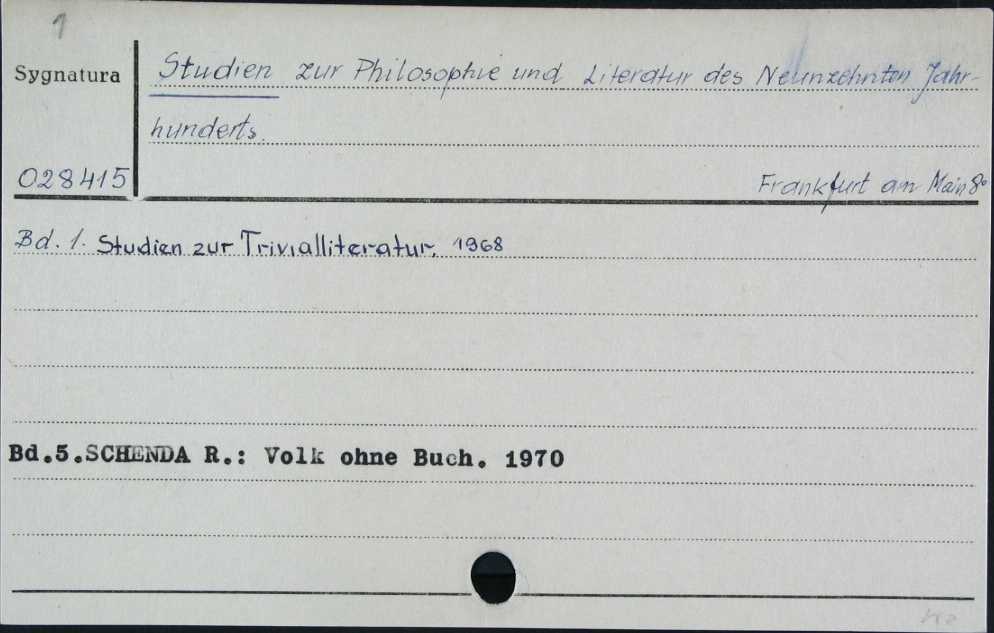 1
Sygnatura
Studien zur Philosophie und Literatur des Neunzehnten Jahr-
hunderts.
028415
Frankfurt am Main 8°
Bd. 1. Studien zur Trivialliteratur, 1968
Bd.5.SCHENDA R.: Volk ohne Buch. 1970